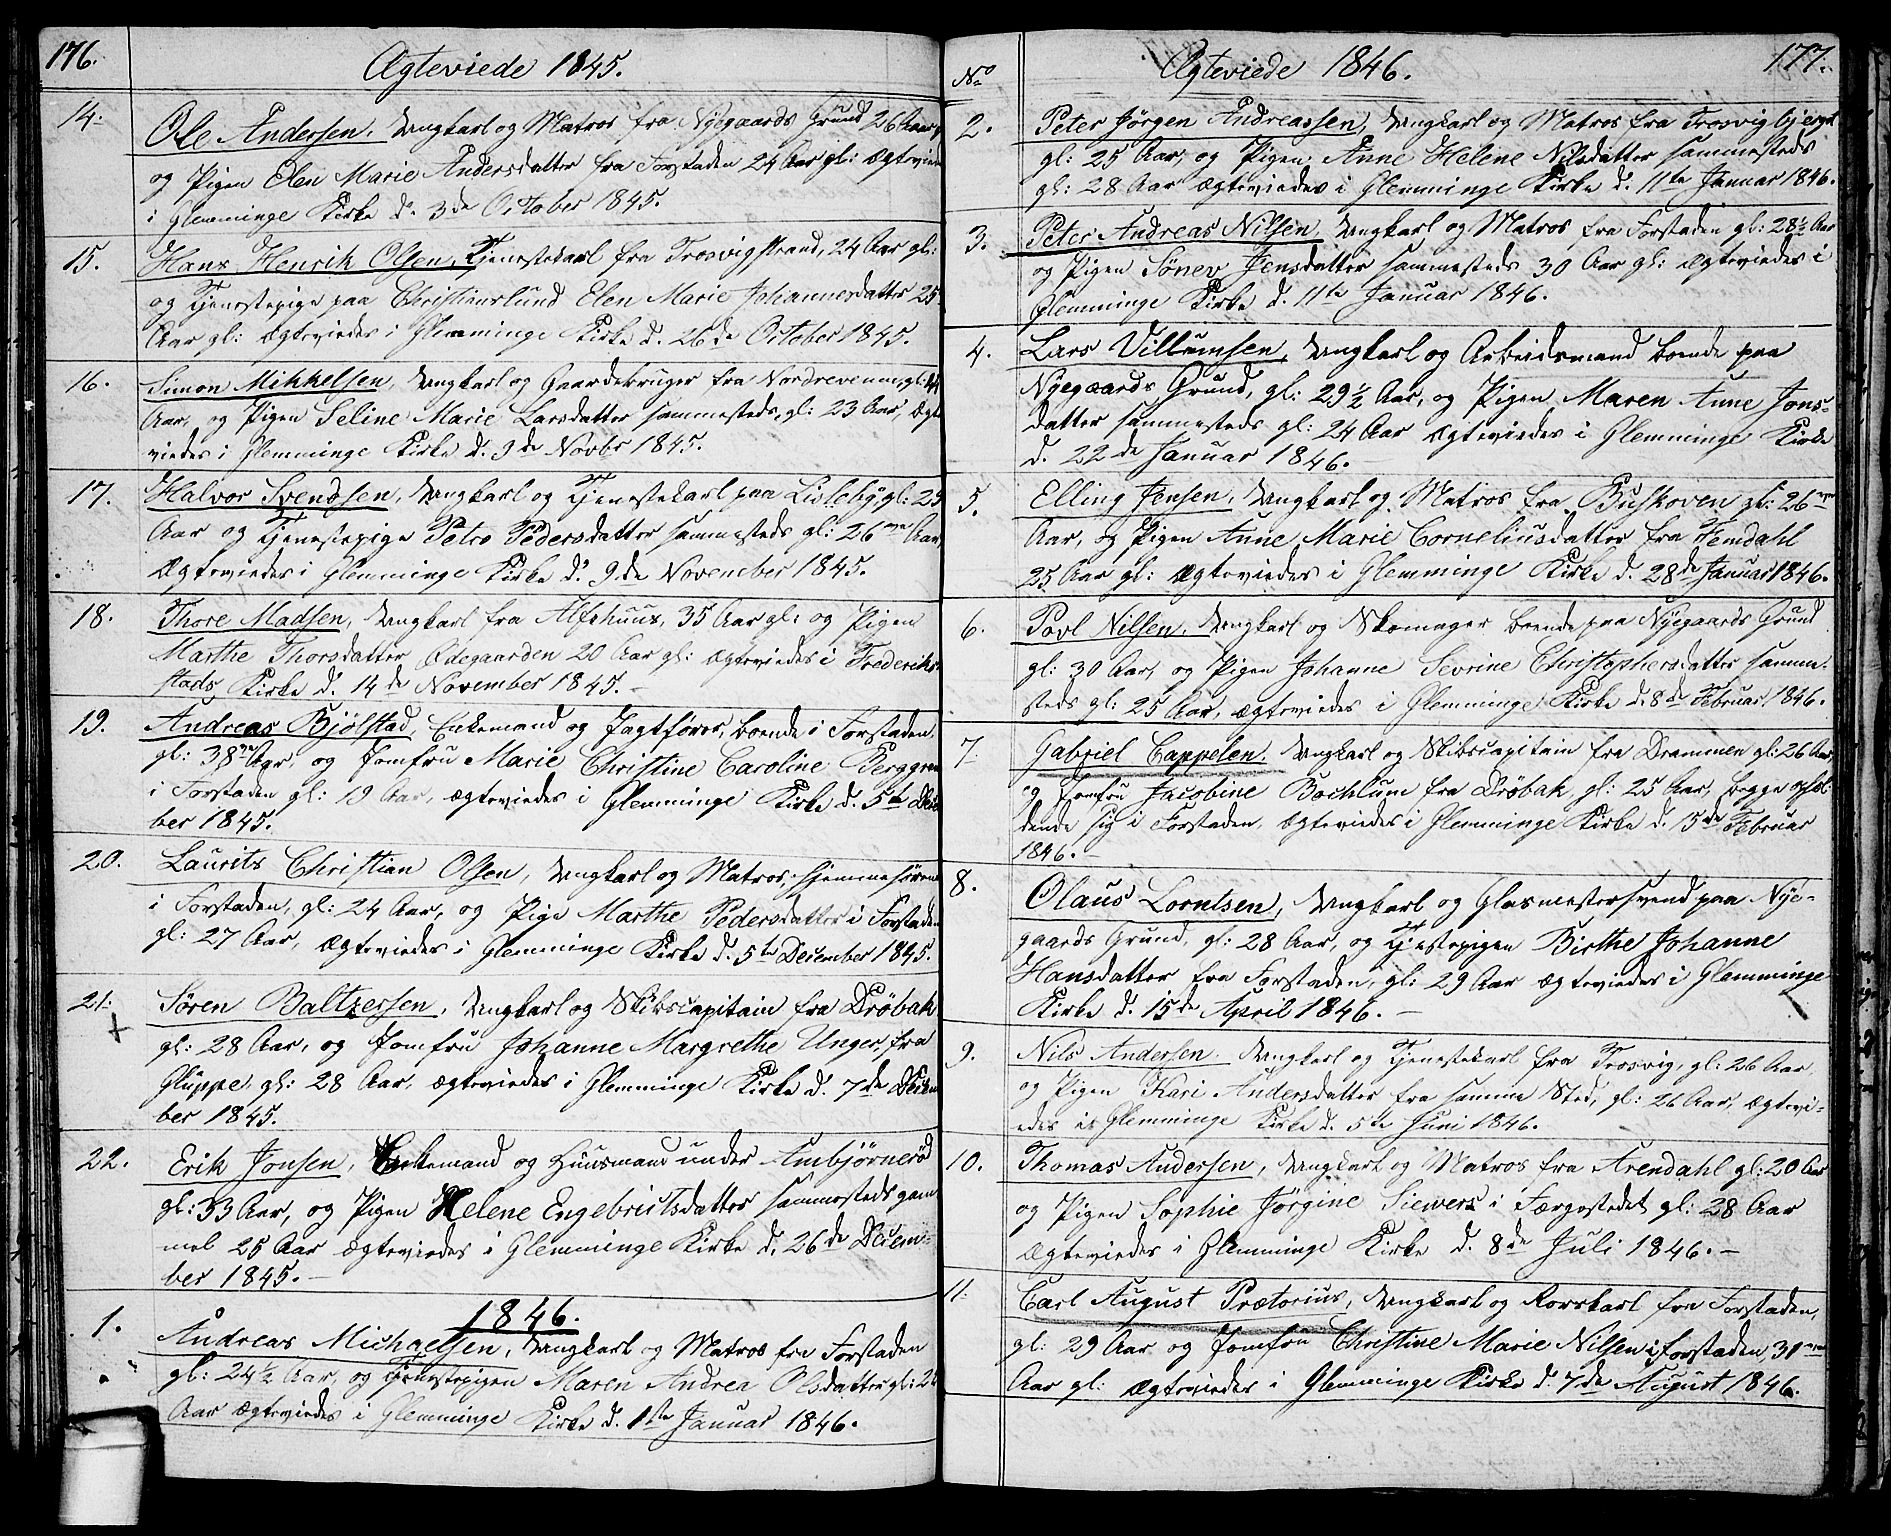 176.
Ægteviede 1845.
14. Ole Andersen, Ungkarl og Matros fra Nyegaards Grund 26 Aar
og Pigen Elen Marie Andersdatter fra Forstaden 24 Aar gl: Ægteviede
i Glemminge Kirke d. 3de October 1845.
15. Hans Henrik Olsen, Tjenestekarl fra Trosvigstrand, 24 Aar gl:
og Tjenestepige paa Christianslund Elen Marie Johannesdatter 25
Aar gl: Ægteviedes i Glemminge Kirke d. 26de October 1845.
16. Simon Mikkelsen, Ungkarl og Gaardebruger fra Nordrevenum, gl: 44
Aar, og Pigen Seline Marie Larsdatter sammesteds, gl: 23 Aar, Ægte
viedes i Glemminge Kirke d. 9de Novbr 1845.
17. Halvor Svendsen, Ungkarl og Tjenestekarl paa Lisleby, gl: 25
Aar og Tjenestepige Petro Pedersdatter sammesteds gl: 26 Aar,
Ægteviedes i Glemminge Kirke d. 9de November 1845.
18. Thore Madsen, Ungkarl fra Alfshuus, 35 Aar gl: og Pigen
Marthe Thorsdatter Ødegaarden 20 Aar gl: ægteviedes i Frederik-
stads Kirke d. 14de November 1845.
19. Andreas Bjølstad, Enkemand og Jagtfører, boende i Forstaden,
gl: 38 Aar, og Jomfru Marie Christine Caroline Berggren
i Forstaden gl: 19 Aar, ægteviedes i Glemminge Kirke d. 5te Decem
ber 1845.
20. Laurits Christian Olsen, Ungkarl og Matros, hjemmehørende
i Forstaden, gl: 24 Aar, og Pige Marthe Pedersdatter i Forstaden
gl: 27 Aar, ægteviedes i Glemminge Kirke d. 5te December 1845.
21. Søren Baltzersen, Ungkarl og Skibscapitain fra Drøbak
gl: 28 Aar, og Jomfru Johanne Margrethe Unger, fra
Gluppe gl: 28 Aar, ægteviedes i Glemminge Kirke d. 7de Decem
ber 1845.
22. Erik Jonsen, Enkemand og Huusmand under Ambjørnerød
gl: 33 Aar, og Pigen Helene Engebrietsdatter sammesteds gam
mel 25 Aar ægteviedes i Glemminge Kirke d. 26de Decem-
ber 1845.
1846.
1. Andreas Michaelsen, Ungkarl og Matros fra Forstaden
gl: 24½ Aar, og Tjenestepigen Maren Andrea Olsdatter gl: 26
Aar ægteviedes i Glemminge Kirke d. 1ste Januar 1846.
177.
No
Ægteviede 1846.
2. Peter Jørgen Andreassen, Ungkarl og Matros fra Trosvigbjerget
gl: 25 Aar, og Pigen Anne Helene Nilsdatter sammesteds
gl: 28 Aar ægteviedes i Glemminge Kirke d. 11te Januar 1846.
3. Peter Andreas Nilsen, Ungkarl og Matros fra Forstaden gl: 28½ Aar
og Pigen Sønev Jensdatter sammesteds 30 Aar gl: ægteviedes i
Glemminge Kirke d. 11te Januar 1846.
4. Lars Villumsen, Ungkarl og Arbeidsmand boende paa
Nyegaards Grund, gl: 29½ Aar, og Pigen Maren Anne Jons-
datter sammesteds gl: 24 Aar ægteviedes i Glemminge Kirke
d. 22de Januar 1846.
5. Elling Jensen, Ungkarl og Matros fra Buskoven gl: 26
Aar, og Pigen Anne Marie Corneliusdatter fra Femdahl
25 Aar gl: ægteviedes i Glemminge Kirke d. 28de Januar 1846.
6. Povl Nilsen, Ungkarl og Skomager boende paa Nyegaards Grund
gl: 30 Aar, og Pigen Johanne Sevrine Christophersdatter samme-
steds gl: 25 Aar, ægteviedes i Glemminge Kirke d. 8de Februar 1846.
7. Gabriel Cappelen, Ungkarl og Skibscapitain fra Drammen gl: 26 Aar,
og Jomfru Jacobine Bochlum fra Drøbak, gl: 25 Aar, begge ophol-
dende sig i Forstaden, ægteviedes i Glemminge Kirke d. 15de Februar
1846.
8. Olaus Lorntsen, Ungkarl og Glasmestersvend paa Nye-
gaards Grund, gl: 28 Aar, og Tjestepigen Birthe Johanne
Hansdatter fra Forstaden, gl: 29 Aar ægteviedes i Glemminge
Kirke d. 15de April 1846.
9. Nils Andersen Ungkarl og Tjenestekarl fra Trosvig, gl: 26 Aar
og Pigen Kari Andersdatter fra samme Sted, gl: 26 Aar, ægtevi-
edes i Glemminge Kirke d. 5te Juni 1846.
10. Thomas Andersen, Ungkarl og Matros fra Arendahl gl: 20 Aar
og Pigen Sophie Jørgine Siewers i Færgestedet gl: 28 Aar
Ægteviedes i Glemminge Kirke d. 8de Juli 1846.
11. Carl August Prætorius, Ungkarl og Rorskarl fra Forstaden,
gl: 29 Aar og Jomfru Christine Marie Nilsen i Forstaden, 31
Aar gl: ægteviedes i Glemminge Kirke d. 7de August 1846.